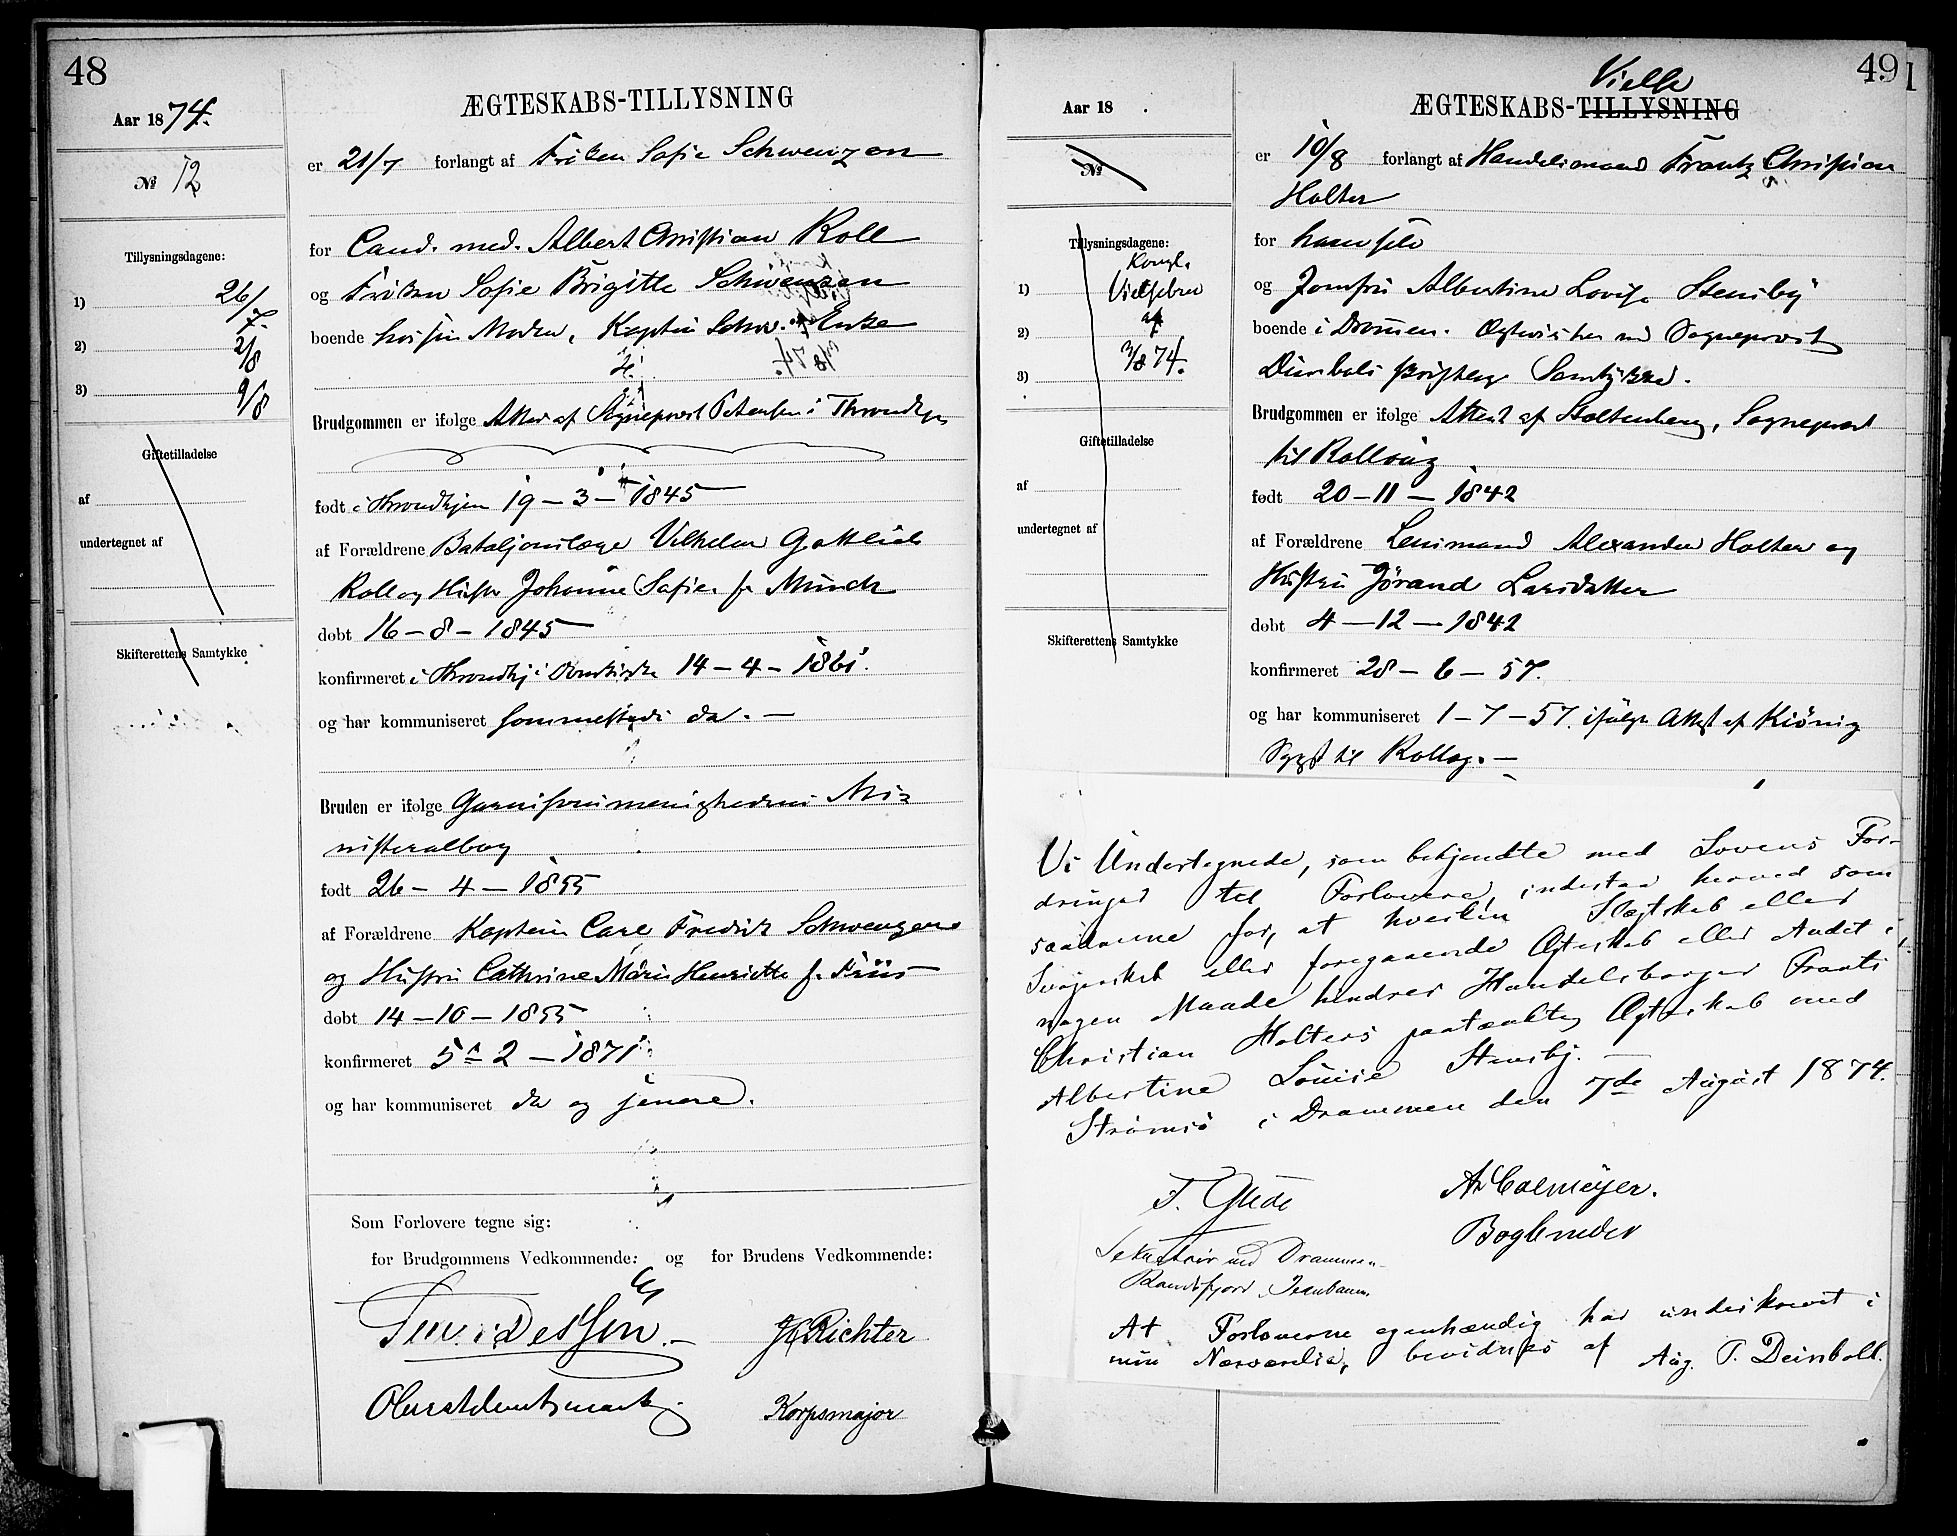 48
Aar 1874.
№ 12
Tillysningsdagene:
1) 26/7
2) 2/8
3) 9/8
Giftetilladelse
af
undertegnet af
Skifterettens Samtykke
ÆGTESKABS-TILLYSNING
er 21/7 forlangt af Frøken Sofie Schwenzen
for Cand. med. Albert Christian Roll
og Frøken Sofie Brigitte Schwenzen
boende hos sin Moder, Kaptein Schw. Enke
Brudgommen er ifølge Attest af Sogneprest Petersen i Throndhjem
født i Throndhjem 19-3-1845
af Forældrene Bataljonslæge Vilhelm Gottlieb
Roll og Hustru Johanne Sofie f. Münch
døbt 16-8-1845
konfirmeret i Throndhj. Domkirke 14-4-1861.
og har kommuniseret sammesteds da.-
Bruden er ifølge Garnisonsmenighedens Mi-
nisterialbog
født 26-4-1855
af Forældrene Kaptein Carl Fredrik Schwenzen
og Hustru Cathrine Marie Henriette f. Friis
døbt 14-10-1855
konfirmeret 5-2-1871
og har kommuniseret da og senere.
Som Forlovere tegne sig:
for Brudgommens Vedkommende: og for Brudens Vedkommende:
Richter
Oberstleutnant
Korpsmajor
49
Aar 18 .
№
Tillysningsdagene:
Kongl.
1) Vielsebrev
2) af
3/8 74.
3)
Giftetilladelse
af
undertegnet af
Skifterettens Samtykke
Vielse
ÆGTESKABS-TILLYSNING
er 10/8 forlangt af Handelsmand Frantz Christian
Holter
for ham selv
og Jomfru Albertine Lovise Stensby
boende i Drammen. Ægtevies her med Sogneprest
Deinbolls skriftlige Samtykke.
Brudgommen er ifølge Attest af Stoltenberg, Sogneprest
til Rollaug
født 20-11-1842
af Forældrene Lensmand Alexander Holter og
Hustru Jørand Larsdatter
døbt 4-12-1842
konfirmeret 28-6-57.
og har kommuniseret 1-7-57. ifølge Attest af Kiønig
Sgpst til Rollag.-
Vi Undertegnede, som bekjendte med Lovens For-
dringer til Forlovere, indestaa herved som
saadanne for, at hverken Slegtskab eller
Svogerskab eller foregaaende Ægteskab eller Andet i
nogen Maade hindrer Handelsborger Frants
Christian Holters paatænkte Ægteskab med
Albertine Louise Stensby.
Strømsø i Drammen den 7de August 1874.
T. Gude
Sekretair ved Drammen-
Randsfjord Jernbanen.
A. Colmeyer.
Bogbinder
At Forloverne egenhændig har underskrevet i
min Nærværelse, bevidnes af Aug. T. Deinboll.